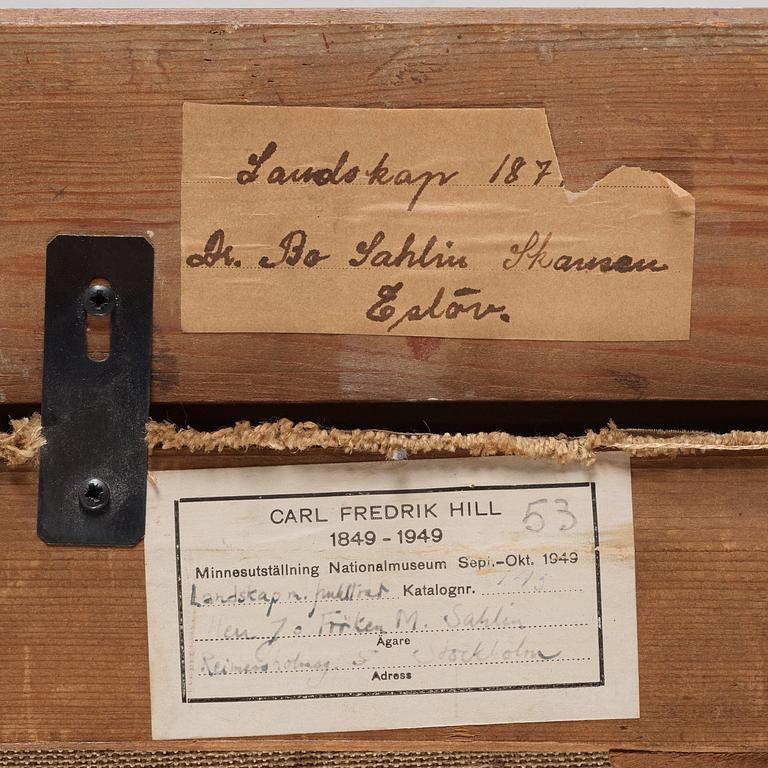 Landskap 187
Dr. Bo Sahlin Skansen
Eslöv.
CARL FREDRIK HILL 53
1849 - 1949
Minnesutställning Nationalmuseum Sept.-Okt. 1949
Landskap m. Katalognr.
Fröken M. Sahlin
Ägare
5 Stockholm
Adress